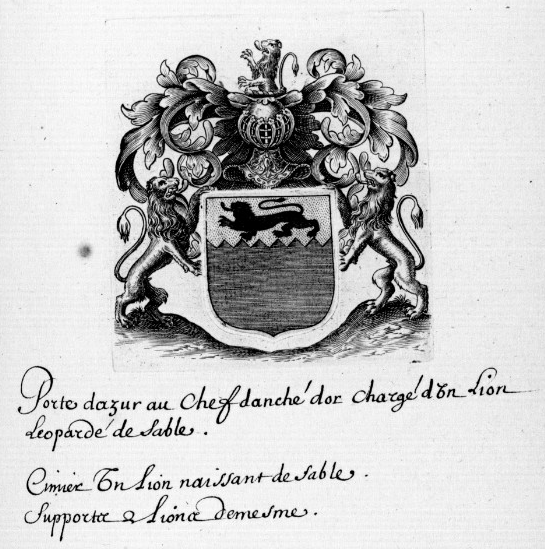 Porte dazur au Chef danché dor chargé d'Un Lion
Leopardé de sable.
Cimier Un Lion naissant de sable.
Supportx 2 Lions demesme.